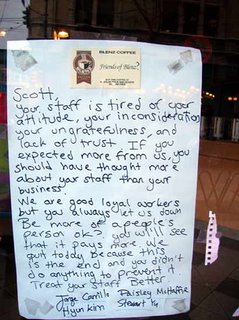 BLENZ COFFEE
Friends of Blenz?
Scott,
Your staff is tired of your
attitude, your inconsideration,
your ungratefulness, and
lack of trust If you
expected more from us, you
should have thought more
about your staff than your
business.
We are good loyal workers
but you always let us down
Be more of a peoples
person ok? you will see
that it pays more. We
quit today because this
is the end and you didn't
do anything to prevent it
Treat your staff Better
Jorge Carrillo Paisley McHaffie
Hyun kim Stewart